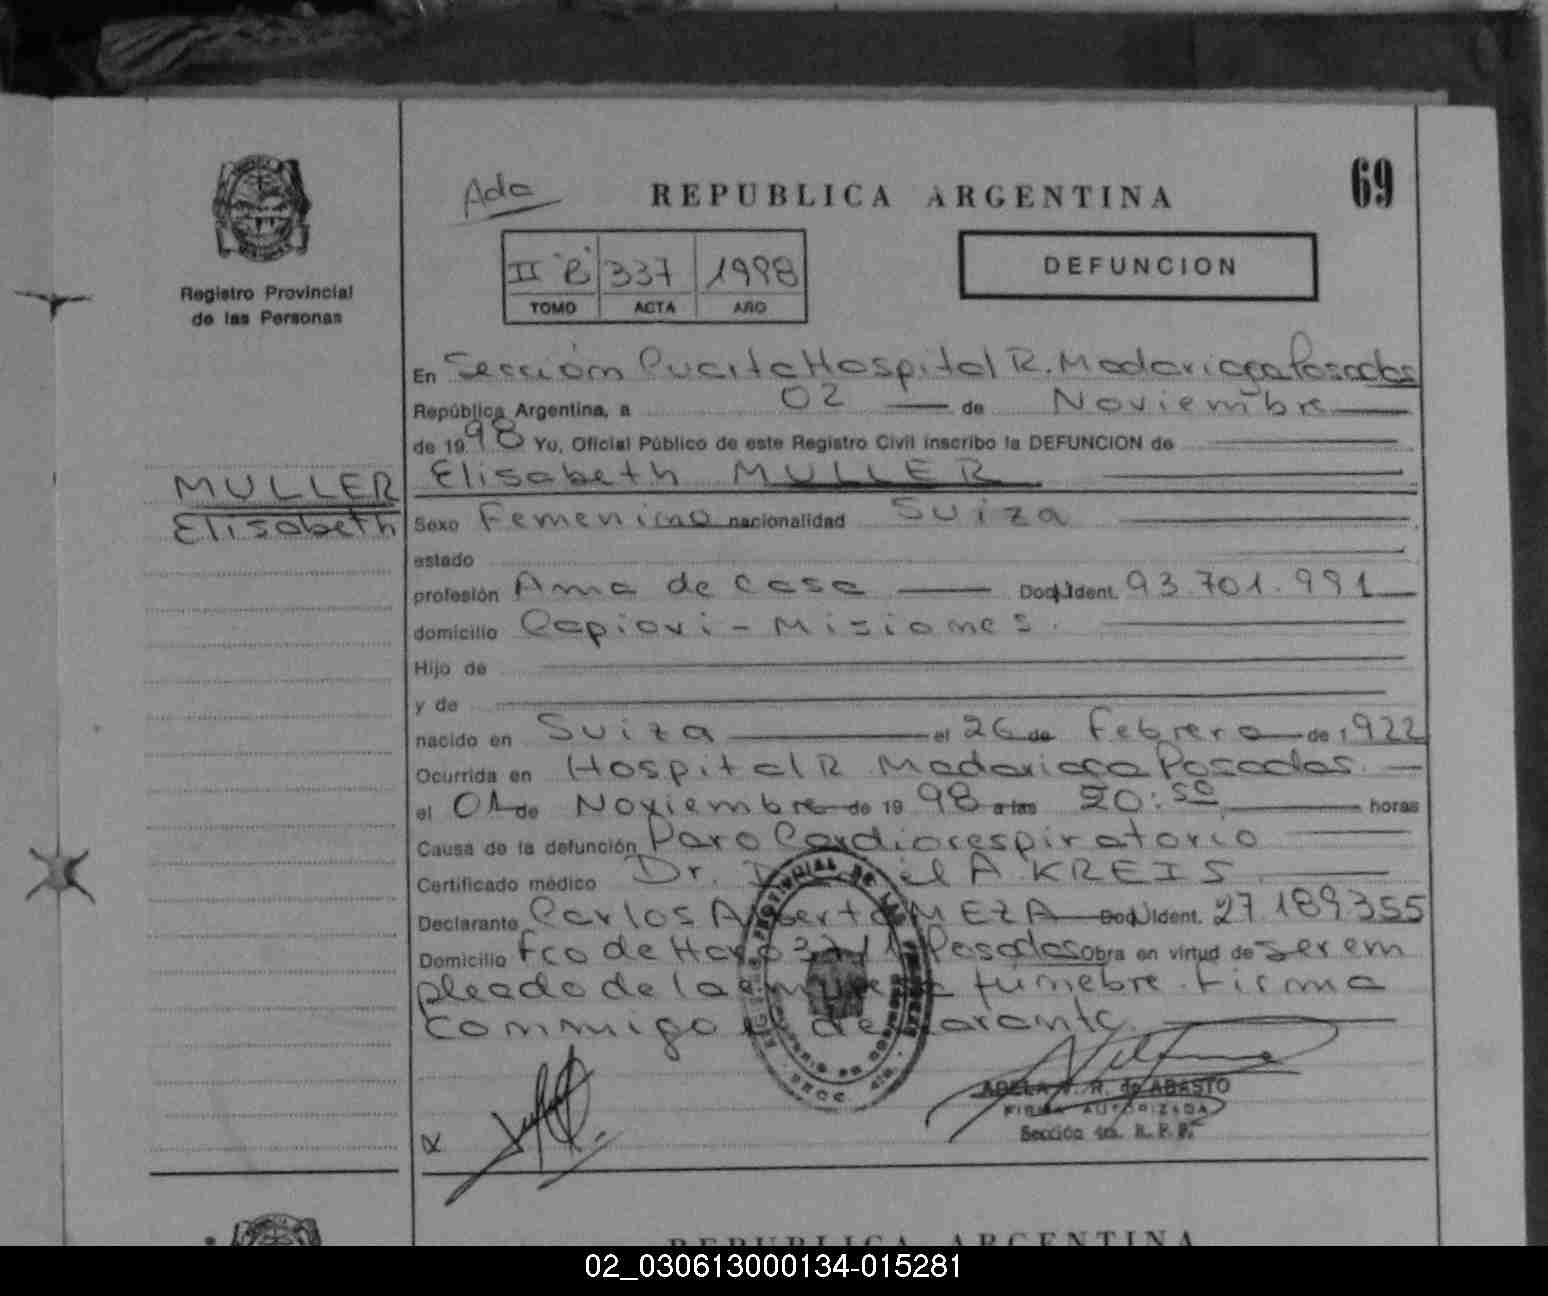 69
Ada
REPUBLICA ARGENTINA
Registro Provincial
de las Personas
II "B" 337 1998
TOMO ACTA AÑO
DEFUNCION
En Sección Cuarta Hospital R. Madariaga Posadas
República Argentina, a 02 de Noviembre
de 1998 Yo, Oficial Público de este Registro Civil inscribo la DEFUNCION de
MULLER
Elisabeth
Elisabeth MULLER
Sexo Femenino nacionalidad Suiza
estado
profesión Ama de casa Doc. Ident. 93.701.991
domicilio Capiovi - Misiones.
Hijo de
y de
nacido en Suiza el 26 de Febrero de 1922
Ocurrida en Hospital R. Madariaga Posadas.
el 01 de Noviembre de 1998 a las 20:50 horas
Causa de la defunción Paro Cardiorespiratorio
Certificado médico Dr. A. KREIS
Declarante Carlos Alberto MEZA Doc. Ident. 27.189.355
Domicilio Fco de Haro Posadas obra en virtud de ser em
pleado de la fúnebre. Firma
conmigo el declarante.
ADELA V. R. de ABASTO
FIRMA AUTORIZADA
Sección 4ta. R. P. P.
REPUBLICA ARGENTINA
02_030613000134-015281